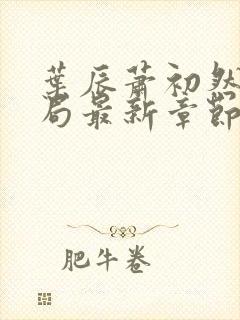 葉辰蕭初然
局最新章節
肥牛卷